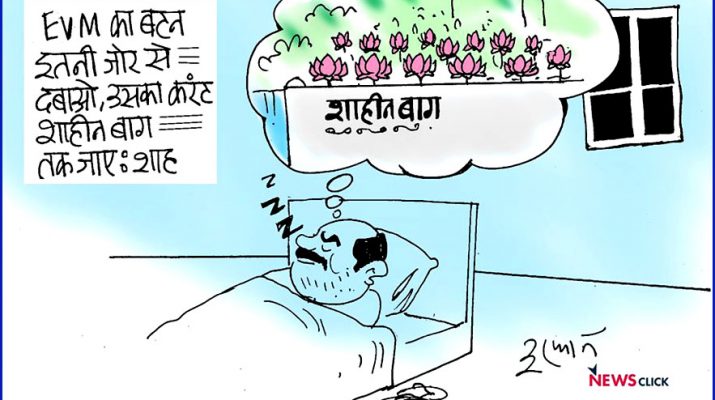 EVM का बटन
इतनी जोर से
दबाओ, उसका करंट
शाहीन बाग
तक जाए : शाह
शाहीन बाग
Z
N
N
N
NEWSCLICK